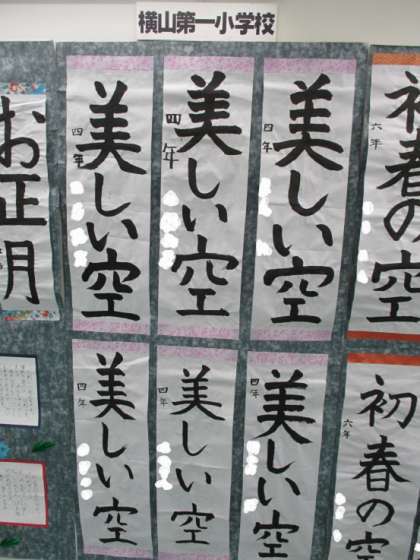 横山第一小学校
初春の空
六年
美しい空
四年
美しい空
四年
美しい空
四年
お正月
初春の空
六年
美しい空
四年
美しい空
四年
美しい空
四年